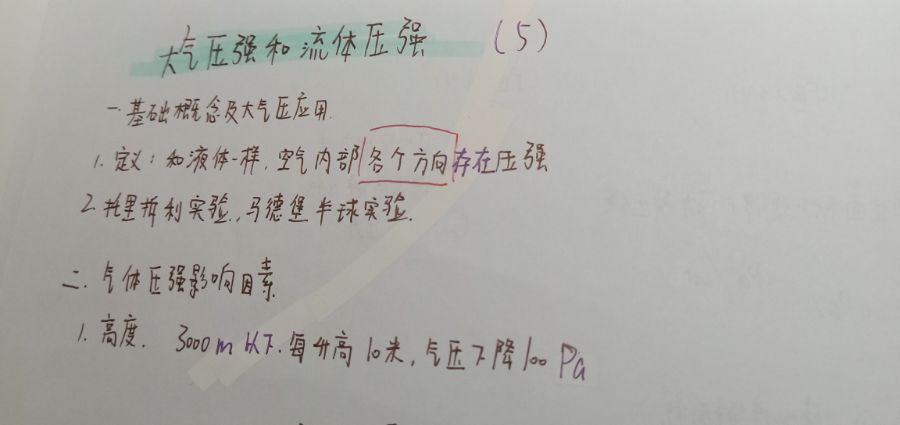 大气压强和流体压强 (5)
一.基础概念及大气压应用.
1. 定义：和液体一样，空气内部各个方向存在压强
2. 托里拆利实验，马德堡半球实验.
二. 气体压强影响因素
1. 高度. 3000m以下.每升高10米，气压下降100Pa